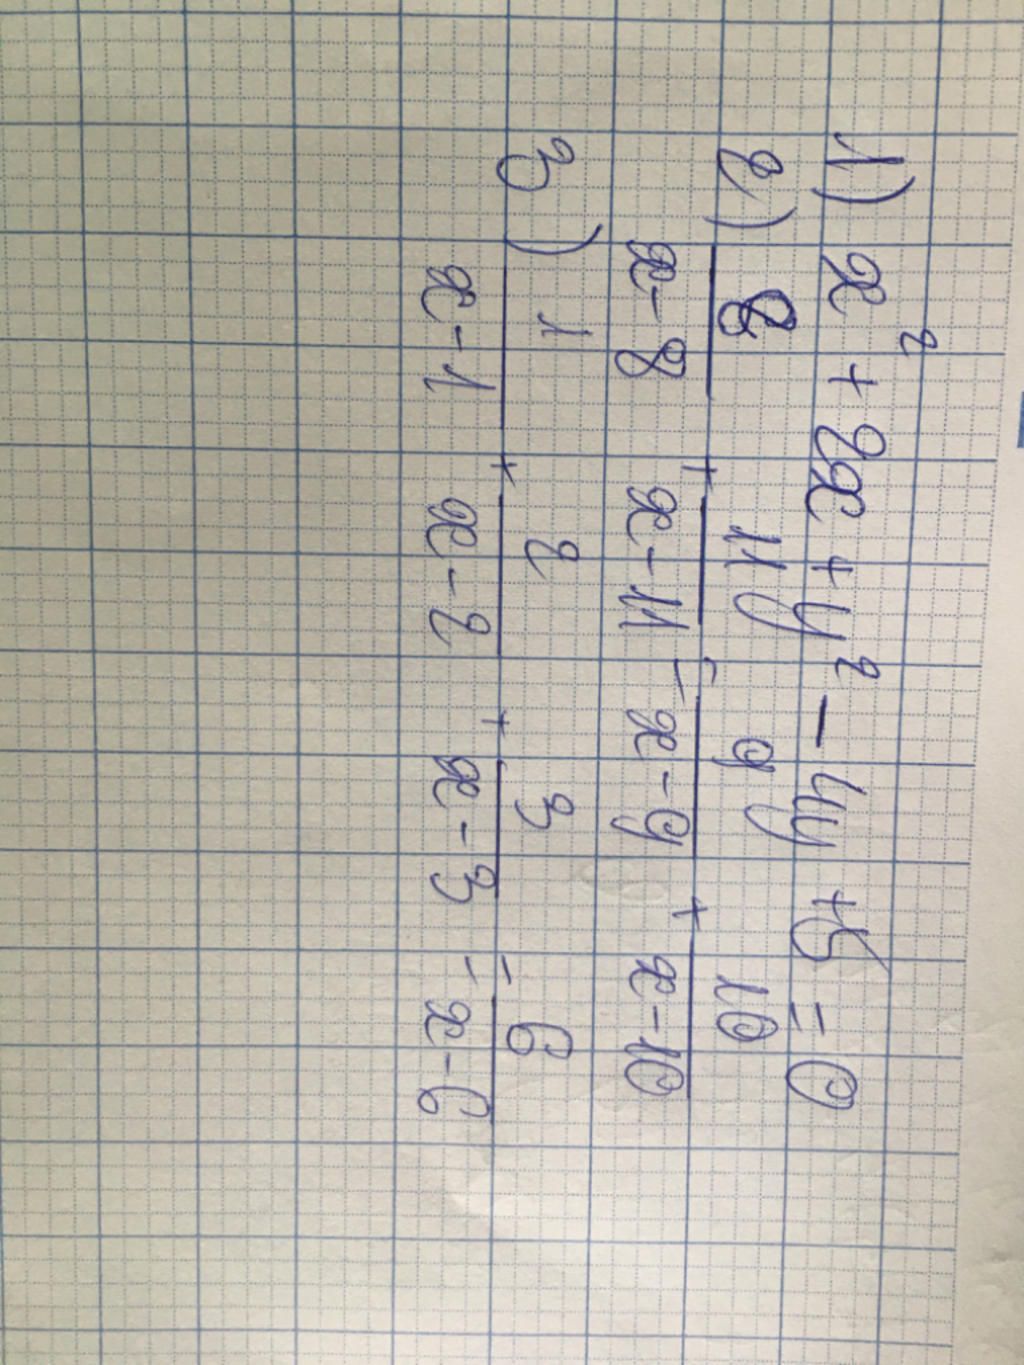 1) x² + 2x + y² - 4y + 5 = 0
2) 8/(x-8) + 11/(x-11) = 9/(x-9) + 10/(x-10)
3) 1/(x-1) + 2/(x-2) + 3/(x-3) = 6/(x-6)